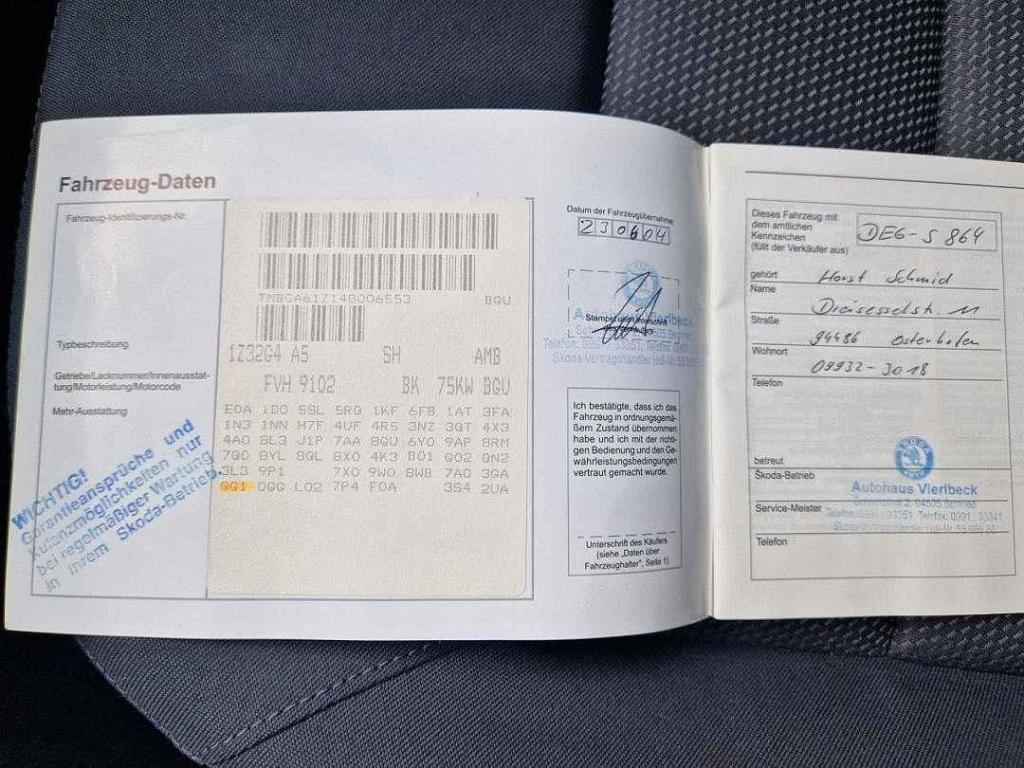 Fahrzeug-Daten
Fahrzeug-Identifizierungs-Nr.
TMBCA61Z148006553 BGU
Typbeschreibung
1Z32G4 A5 SH AMB
Getriebe/Lacknummer/Innenausstat-
tung/Motorleistung/Motorcode
FVH 9102 BK 75KW BGU
Mehr-Ausstattung
E0A 1D0 5SL 5RQ 1KF 6FB 1AT 3FA
1N3 1NN H7F 4UF 4R5 3NZ 3QT 4X3
4A0 8L3 J1P 7AA 8GU 6Y0 9AP 8RM
7Q0 8YL 8QL 8X0 4K3 B01 G02 QN2
3L3 9P1 7X0 9W0 8WB 7A0 3GA
QG1 0GG L02 7P4 F0A 3S4 2UA
WICHTIG!
Garantieansprüche und
Kulanzmöglichkeiten nur
bei regelmäßiger Wartung
in Ihrem Skoda-Betrieb.
Datum der Fahrzeugübernahme:
230604
Ich bestätigte, dass ich das
Fahrzeug in ordnungsgemä-
ßem Zustand übernommen
habe und ich mit der richti-
gen Bedienung und den Ge-
währleistungsbedingungen
vertraut gemacht wurde.
Unterschrift des Käufers
(siehe „Daten über
Fahrzeughalter", Seite 1)
Dieses Fahrzeug mit
dem amtlichen
Kennzeichen
(füllt der Verkäufer aus)
DEG-S 864
gehört Horst Schmid
Name
Straße
94486 Osterhofen
Wohnort
09932-3018
Telefon
betreut
Škoda-Betrieb
Autohaus Vierlbeck
Service-Meister
Telefon